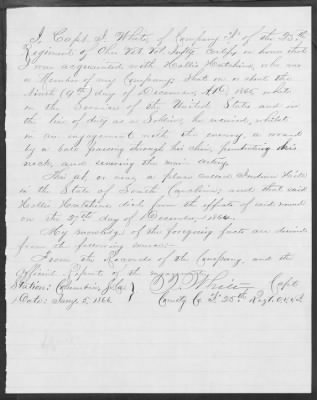 I Capt. J. White, of Company "F" of the 25th
Regiment of Ohio Vet. Vol. Inft'y Certify on honor that
I was acquainted with Hollis Hutchins, who was
a Member of my Company; That on or about the
Ninth (9th) day of December, A.D. 1865 while
in the Service of the United States and in
the line of duty as a Soldier, he received, whilst
in an engagement with the enemy, a wound
by a ball passing through his chin, penetrating his
neck, and severing the main artery.
This at or near a place called Indian Hill
in the State of South Carolina; and that said
Hollis Hutchins died from the effects of said wound
on the 27th day of December, 1864.
My knowledge of the foregoing facts are derived
from the following source:—
From the Records of the Company, and the
Official Report of the
Station: Columbia, S.Ca.
Date: Jany. 5, 1866.
J. White, Capt
Comdg Co. F. 25th Regt. O.V.V.I.